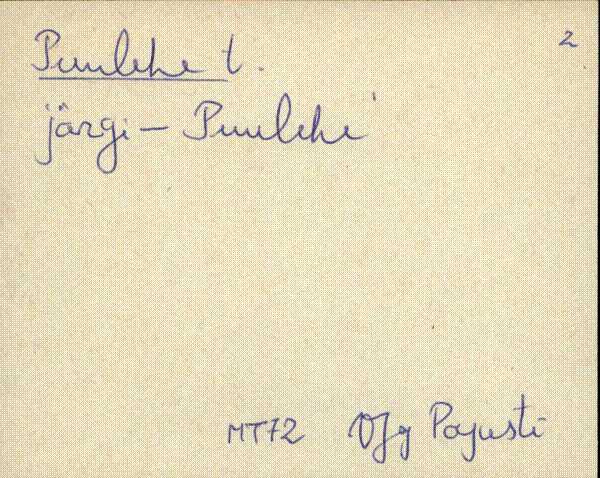 2
Puulehe t.
järgi — Puulehe
MT72 VJg Pajusti